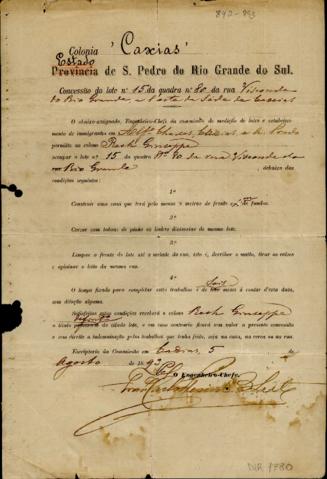 892-893
Colonia "Caxias"
Estado
Provincia de S. Pedro do Rio Grande do Sul.
Concessão do lote n.º 15 da quadra n.º 80 da rua Visconde
do Rio Grande
O abaixo-assignado, Engenheiro-Chefe da commissão de medição de lotes e estabeleci-
mento de immigrantes em
permitte ao colono Rech Giuseppe
occupar o lote n.º 15 da quadra n.º 80 da rua Visconde do
Rio Grande, debaixo das
condições seguintes:
1ª
Construir uma casa que terá pelo menos metros de frente e de fundos.
2ª
Cercar com todos os limites divisorios do mesmo lote.
3ª
Limpar a frente do lote até a metade da rua, isto é, derribar o matto, tirar as raizes
e aplainar o leito da mesma rua.
4ª
O tempo fixado para completar estes trabalhos é de mezes á contar d'esta data,
sem dilação alguma.
Satisfeitas estas condições receberá o colono Rech Giuseppe
o titulo do citado lote, e em caso contrario ficará sem valor a presente concessão
e sem direito a indemnisação pelos trabalhos que tenha feito, seja na casa, na cerca ou na rua.
Escriptorio da Commissão em Caxias, 5 de
Agosto de 1892
O Engenheiro-Chefe,
DUR 1780